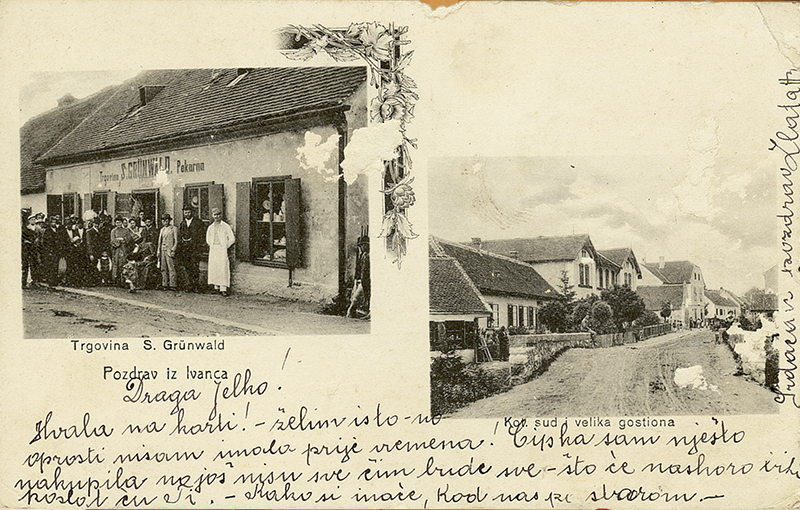 Trgovina S. GRÜNWALD. Pekarna
Trgovina S. Grünwald
Pozdrav iz Ivanca
Kot. sud i velika gostiona
Draga Jelko!
Hvala na karti! - želim isto - no
oprosti nisam imala prije vremena! Cipka sam nješto
nakupila no još nisu sve čim bude sve - što će naskoro biti
poslat ću Ti. - Kako si inače, kod nas po starom. -
Srdačan pozdrav Zlata